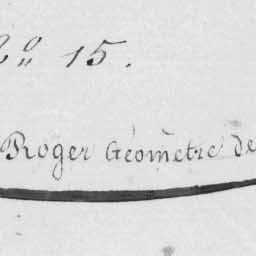 N° 15.
Roger Géomètre de